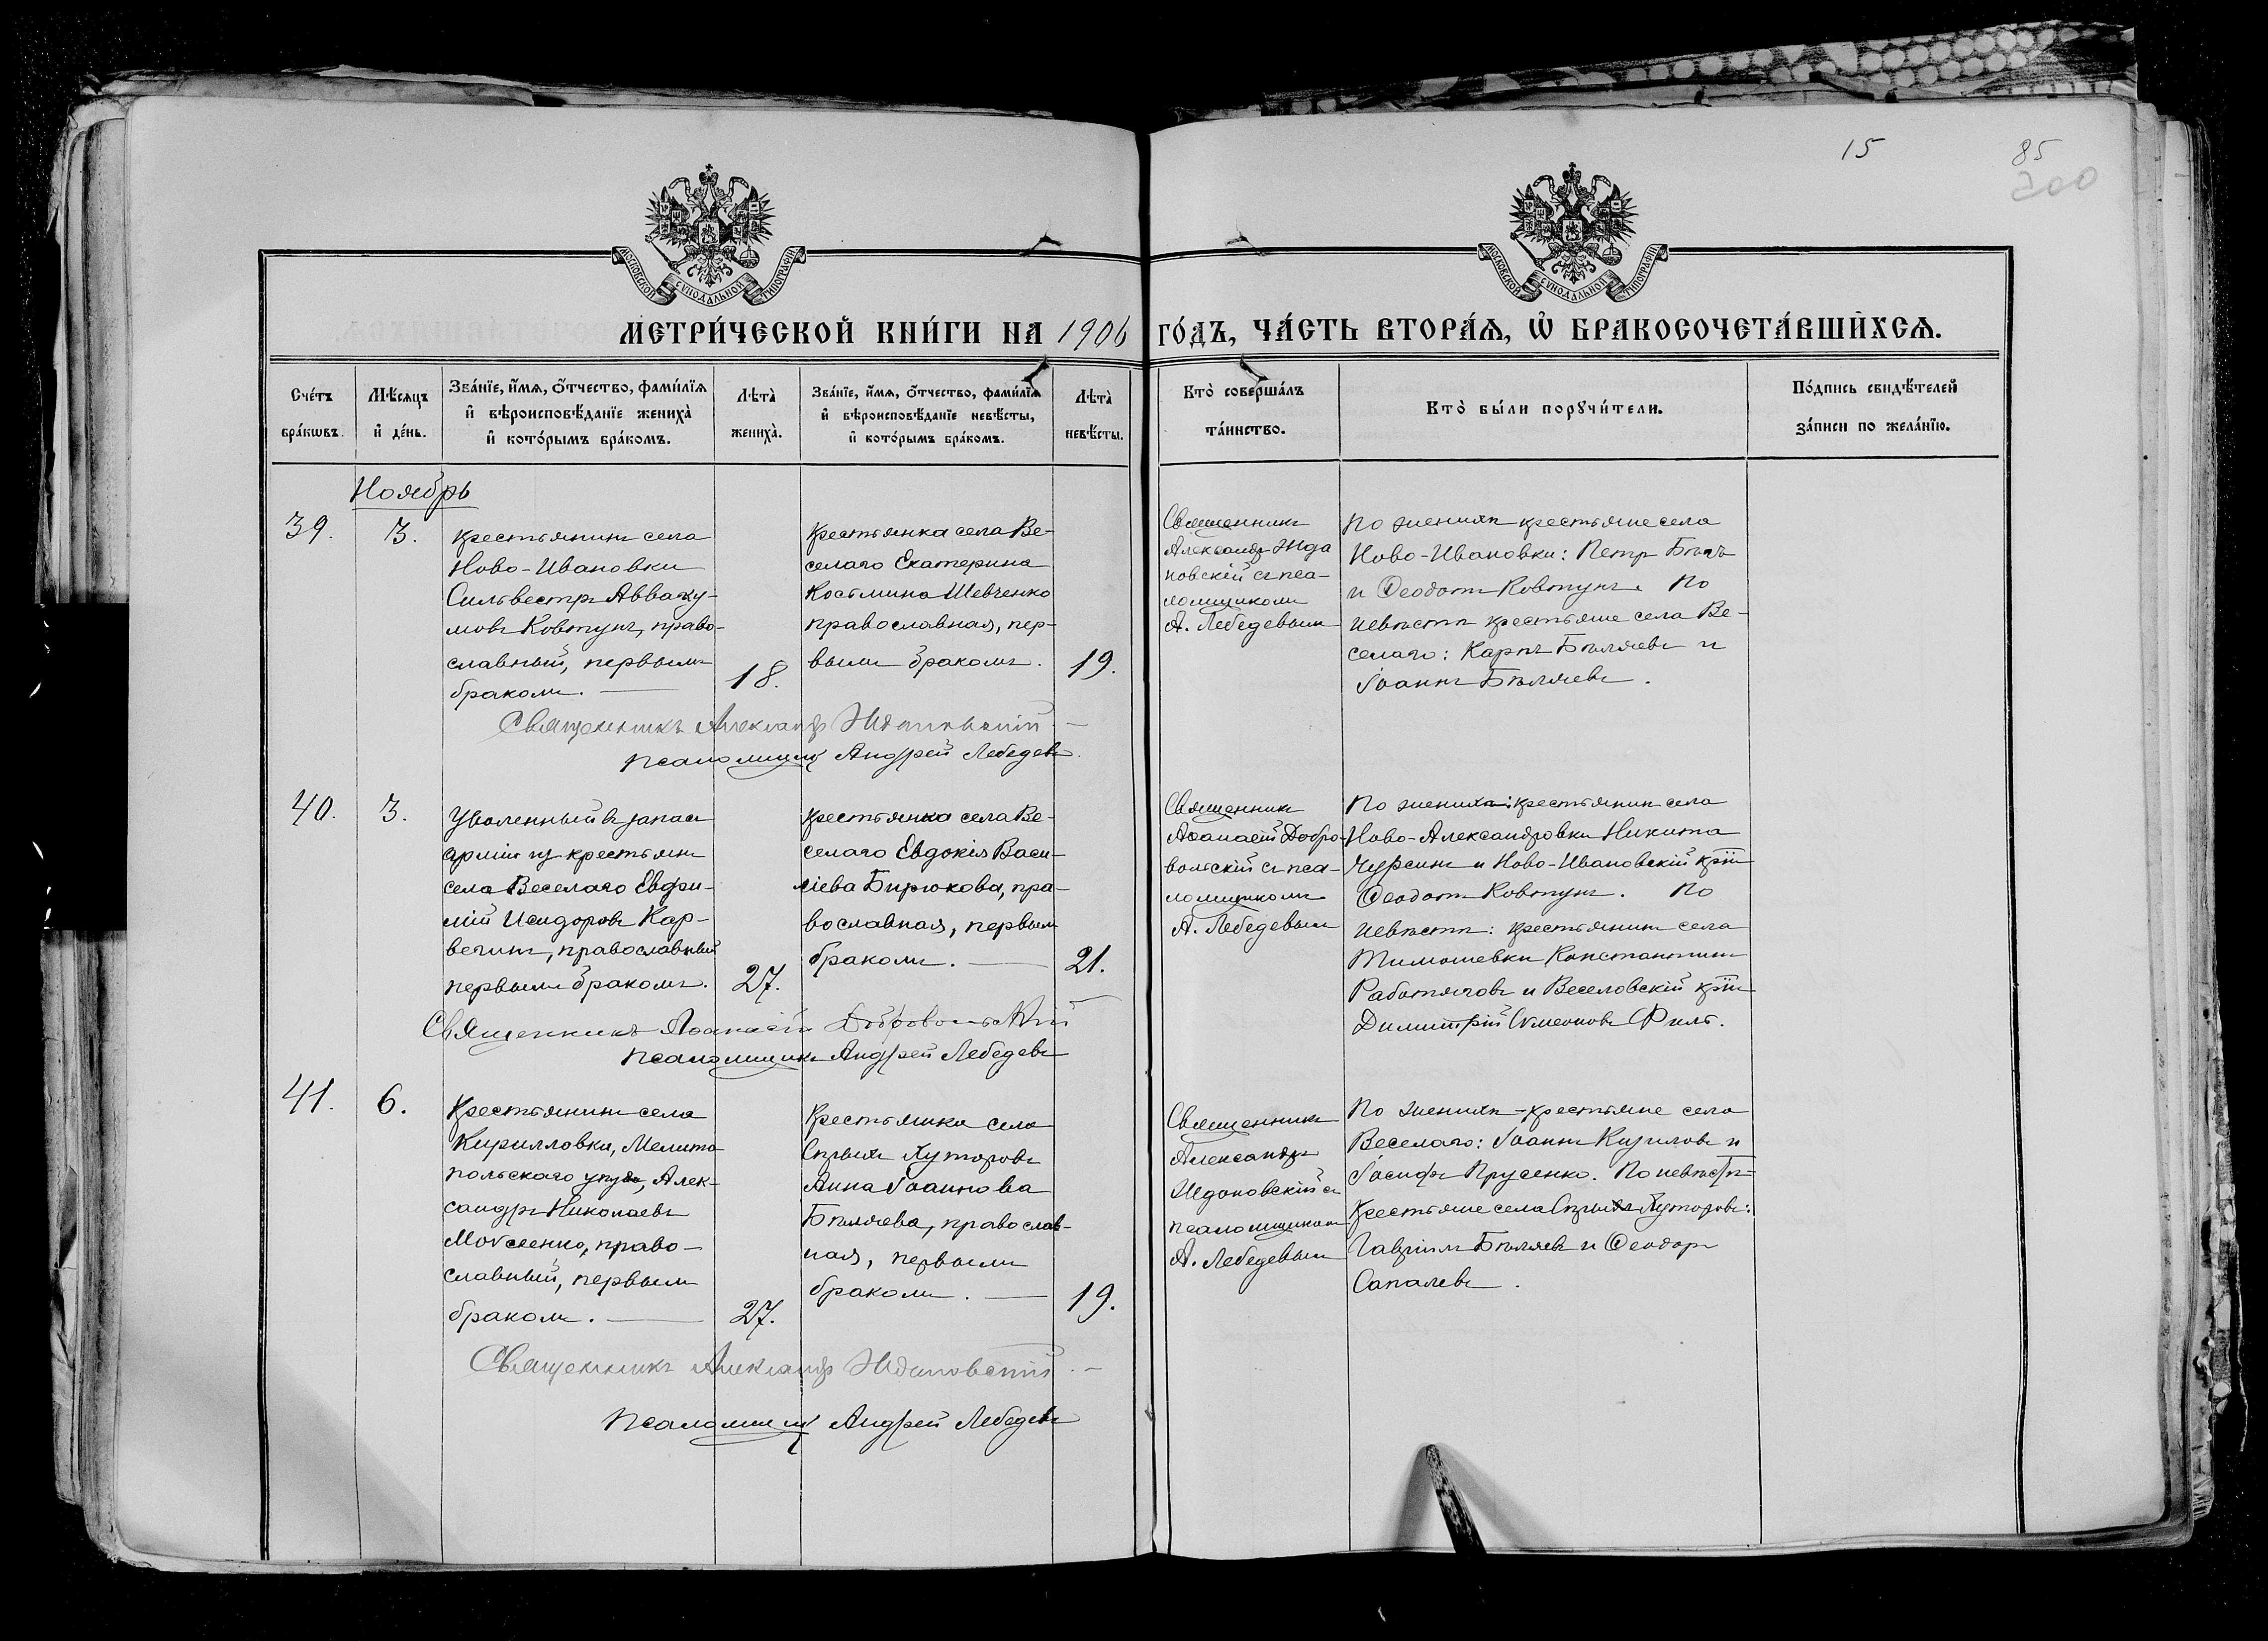 15
85
200
МОСКОВСКОЙ СѴНОДАЛЬНОЙ ТИПОГРАФІИ
МОСКОВСКОЙ СѴНОДАЛЬНОЙ ТИПОГРАФІИ
МЕТРИ́ЧЕСКОЙ КНИ́ГИ НА 1906 ГО́ДЪ, ЧА́СТЬ ВТОРА́Ѧ, Ѡ҆ БРАКОСОЧЕТА́ВШИХСѦ.
Сче́тъ
бра́кѡвъ.
Мѣ́сѧцъ
и҆ де́нь.
Зва́нїе, и҆́мѧ, ѻ҆́тчество, фами́лїѧ
и҆ вѣроисповѣ́данїе жениха̀
и҆ кото́рымъ бра́комъ.
Лѣта̀
жениха̀.
Зва́нїе, и҆́мѧ, ѻ҆́тчество, фами́лїѧ
и҆ вѣроисповѣ́данїе невѣ́сты,
и҆ кото́рымъ бра́комъ.
Лѣта̀
невѣ́сты.
Кто̀ соверша́лъ
та́инство.
Кто̀ бы́ли порꙋчи́тели.
По́дпись свидѣ́телей
за́писи по жела́нїю.
Ноябрь
39.
3.
Крестьянинъ села
Ново-Ивановки
Сильвестръ Авваку-
мовъ Ковтунъ, право-
славный, первымъ
бракомъ.
18.
Крестьянка села Ве-
селаго Екатерина
Косьмина Шевченко
православная, пер-
вымъ бракомъ.
19.
Священникъ
Александръ Жда
новскій съ пса-
ломщикомъ
А. Лебедевымъ
По женихѣ крестьяне села
Ново-Ивановки: Петръ Бѣлъ
и Ѳеодотъ Ковтунъ. По
невѣстѣ крестьяне села Ве-
селаго: Карпъ Бѣляевъ и
Іоаннъ Бѣляевъ.
Священникъ Александръ Ждановскій
Псаломщикъ Андрей Лебедевъ
40.
3.
Уволенный въ запасъ
арміи изъ крестьянъ
села Веселаго Евфи-
мій Исидоровъ Кар-
вечинъ, православный
первымъ бракомъ.
27.
Крестьянка села Ве-
селаго Евдокія Васи-
ліева Бирюкова, пра-
вославная, первымъ
бракомъ.
21.
Священникъ
Аѳанасій Добро-
вольскій съ пса-
ломщикомъ
А. Лебедевымъ
По женихѣ: крестьянин села
Ново-Александровки Никита
Чурсинъ и Ново-Ивановскій кр-нъ
Ѳеодотъ Ковтунъ. По
невѣстѣ: крестьянинъ села
Тимошевки Константинъ
Работяговъ и Веселовскій кр-нъ
Димитрій Сѵмеоновъ Филь.
Священникъ Аѳанасій Добровольскій
Псаломщикъ Андрей Лебедевъ
41.
6.
Крестьянинъ села
Кирилловки, Мелито
польскаго уѣзда, Алек-
сандръ Николаевъ
Моѵсеенко, право-
славный, первымъ
бракомъ.
27.
Крестьянка села
Сѣрыхъ Хуторовъ
Анна Іоаннова
Бѣляева, православ-
ная, первымъ
бракомъ.
19.
Священникъ
Александръ
Ждановскій съ
псаломщикомъ
А. Лебедевымъ
По женихѣ - крестьяне села
Веселаго: Іоаннъ Кириловъ и
Іосифъ Прусенко. По невѣстѣ-
крестьяне села Сѣрыхъ Хуторовъ:
Гавріилъ Бѣляевъ и Ѳеодоръ
Сапалевъ.
Священникъ Александръ Ждановскій
Псаломщикъ Андрей Лебедевъ